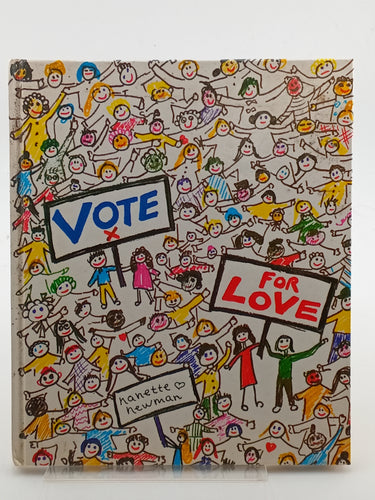 VOTE
x
FOR
LOVE
nanette ♡
newman